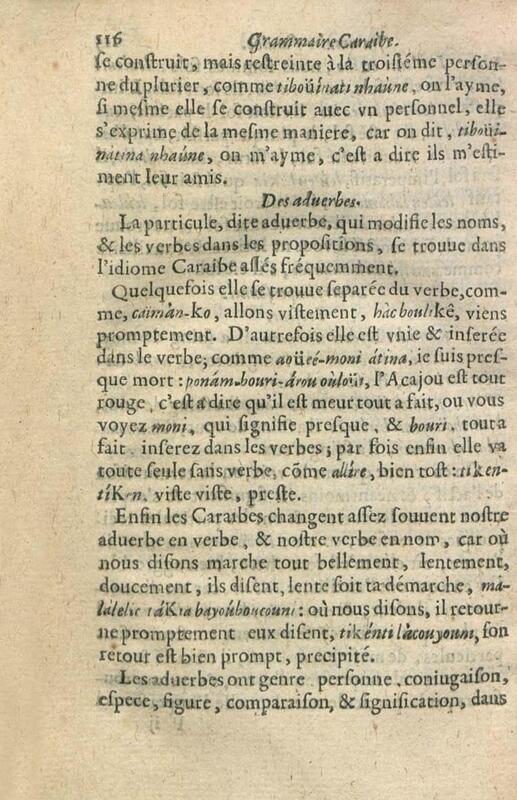 116 Grammaire Caraibe.
se construit, mais restreinte à la troisiéme person-
ne du plurier, comme tiboüinati nhaúne, on l'ayme,
si mesme elle se construit auec vn personnel, elle
s'exprime de la mesme maniere, car on dit, tiboüi-
nátina nhaúne, on m'ayme, c'est a dire ils m'esti-
ment leur amis.
Des aduerbes.
La particule, dite aduerbe, qui modifie les noms,
& les verbes dans les propositions, se trouue dans
l'idiome Caraibe assés fréquemment.
Quelquefois elle se trouue separée du verbe, com-
me, caimàn-ko, allons vistement, hàc boulikê, viens
promptement. D'autrefois elle est vnie & inserée
dans le verbe; comme aoüeé-moni átina, ie suis pres-
que mort : ponám-bouri-árou oùloüi, l'Acajou est tout
rouge, c'est a dire qu'il est meur tout a fait, ou vous
voyez moni, qui signifie presque, & bouri, tout a
fait, inserez dans les verbes; par fois enfin elle va
toute seule sans verbe, cõme allire, bien tost : tiken-
tiKen, viste viste, preste.
Enfin les Caraibes changent assez souuent nostre
aduerbe en verbe, & nostre verbe en nom, car où
nous disons marche tout bellement, lentement,
doucement, ils disent, lente soit ta démarche, má-
lalelic táKia bayoúboucouni : où nous disons, il retour-
ne promptement eux disent, tikénti lácouyouni, son
retour est bien prompt, precipité.
Les aduerbes ont genre, personne, coniugaison,
espece, figure, comparaison, & signification, dans